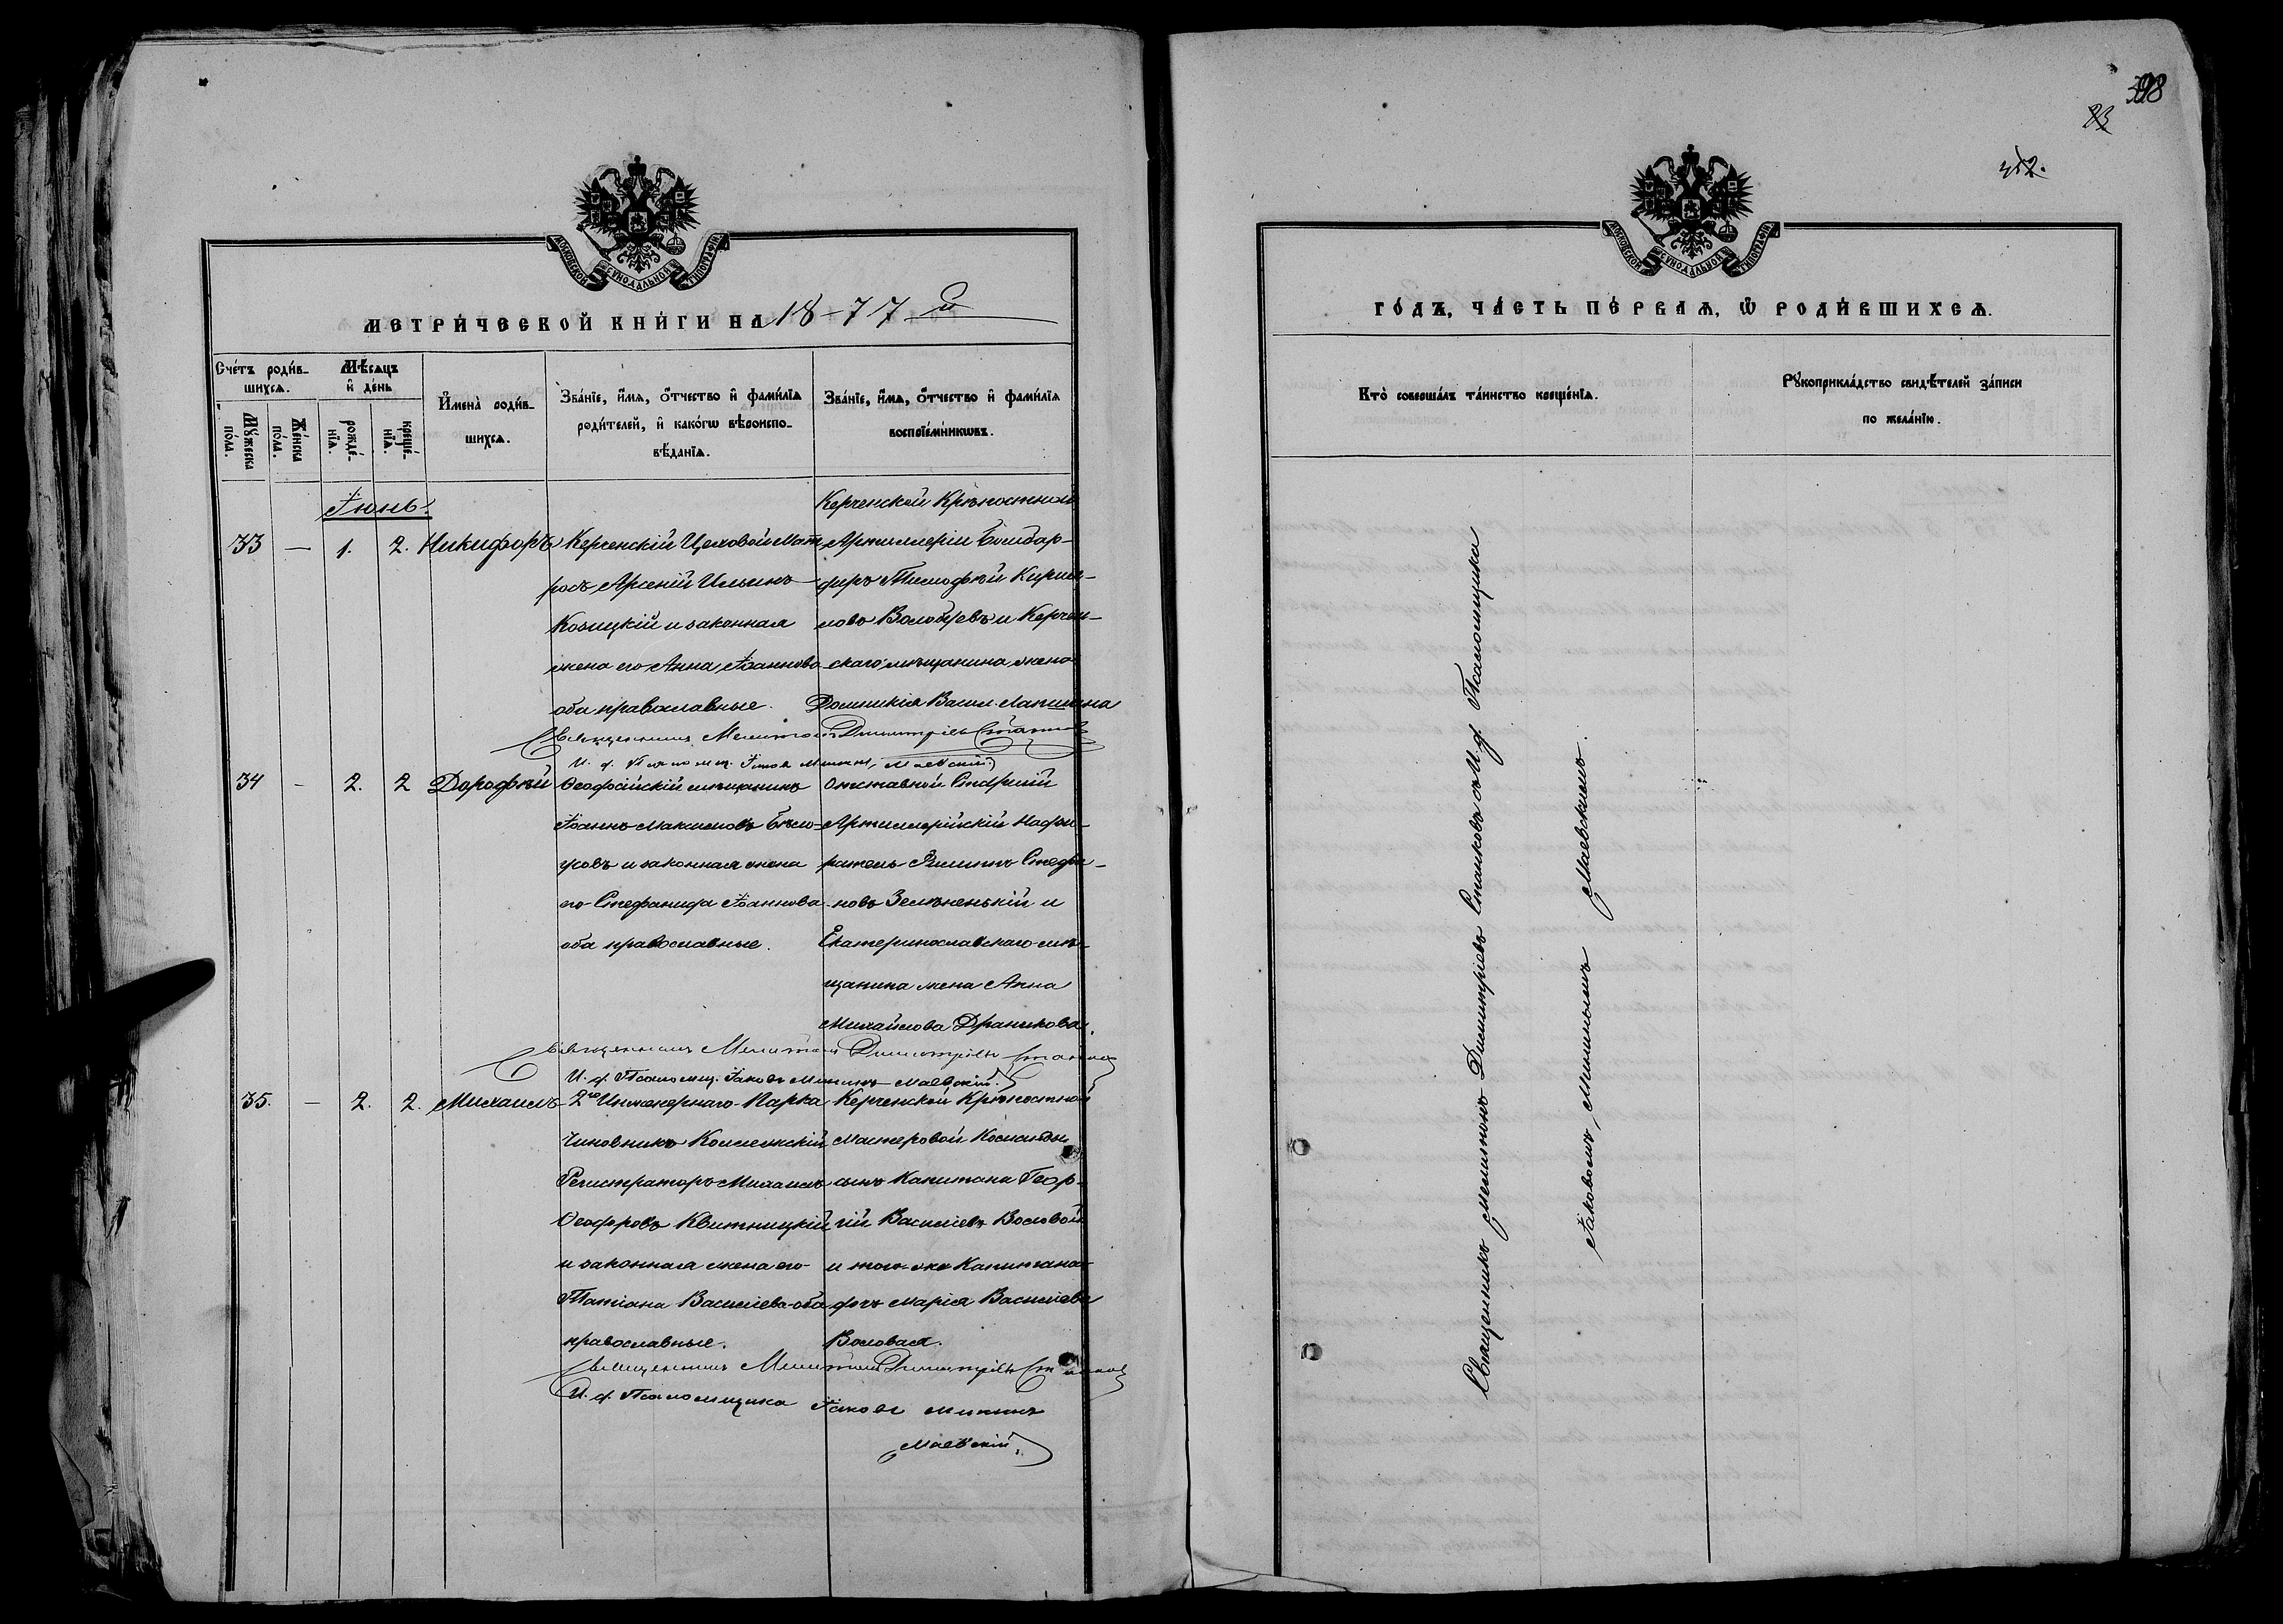 398
83
352.
МОСКОВСКОЙ СѴНОДАЛЬНОЙ ТИПОГРАФІИ
МЕТРИ́ЧЕСКОЙ КНИ́ГИ НА 1877 й
Сче́тъ роди́в-
шихсѧ.
Мꙋ́жеска по́ла.
Же́нска по́ла.
Мѣ́сѧцъ и҆ де́нь
рожде́-нїѧ.
креще́-нїѧ.
И҆мена̀ роди́в-
шихсѧ.
Зва́нїе, и҆́мѧ, ѻ҆́тчество и҆ фами́лїѧ
роди́телей, и҆ како́гѡ вѣроиспо-
вѣ́данїѧ.
Зва́нїе, и҆́мѧ, ѻ҆́тчество и҆ фами́лїѧ
воспрїе́мникѡвъ.
Іюнь.
33 — 1. 2. Никифоръ
Керченскій Цеховой Мат-
росъ Арсеній Ильинъ
Козицкій и законная
жена его Анна Іоаннова
оба православные.
Керченской Крѣпостной
Артиллеріи Бомбар-
диръ Тимофѣй Кирил-
ловъ Волобуевъ и Керчен-
скаго мѣщанина жена
Домникія Васил. Лапшина
Священникъ Мелитонъ Димитріевъ Станковъ
И. д. Псаломщ. Іаковъ Мининъ Маевскій
34 — 2. 2 Дорофѣй
Ѳеодосійскій мѣщанинъ
Іоаннъ Максимовъ Бѣло-
усовъ и законная жена
его Стефанида Іоаннова
оба православные.
Отставной Старшій
Артиллерійскій Надзи-
ратель Филиппъ Стефа-
новъ Зелененькій и
Екатеринославскаго мѣ-
щанина жена Анна
Михайлова Драникова.
Священникъ Мелитонъ Димитріевъ Станковъ
И. д. Псаломщ. Іаковъ Мининъ Маевскій.
35. — 2. 2. Михаилъ
2го Инженернаго Парка
Чиновникъ Коллежскій
Регистраторъ Михаилъ
Ѳеодоровъ Квитницкій
и законная жена его
Татіана Василіева оба
православные.
Керченской Крѣпостной
Мастеровой Команды
сынъ Капитана Геор-
гій Василіевъ Воловой
и того же Капитана
дочь Марія Василіева
Воловая.
Священникъ Мелитонъ Димитріевъ Станковъ
И. д. Псаломщика Іаковъ Мининъ
Маевскій.
МОСКОВСКОЙ СѴНОДАЛЬНОЙ ТИПОГРАФІИ
ГО́ДЪ, ЧА́СТЬ ПЕ́РВАѦ, Ѡ҆ РОДИ́ВШИХСѦ.
Кто̀ соверша́лъ та́инство креще́нїѧ.
Рꙋкоприкла́дство свидѣ́телей за́писи
по жела́нїю.
Священникъ Мелитонъ Димитріевъ Станковъ съ И. д. Псаломщика
Іаковомъ Мининымъ Маевскимъ.